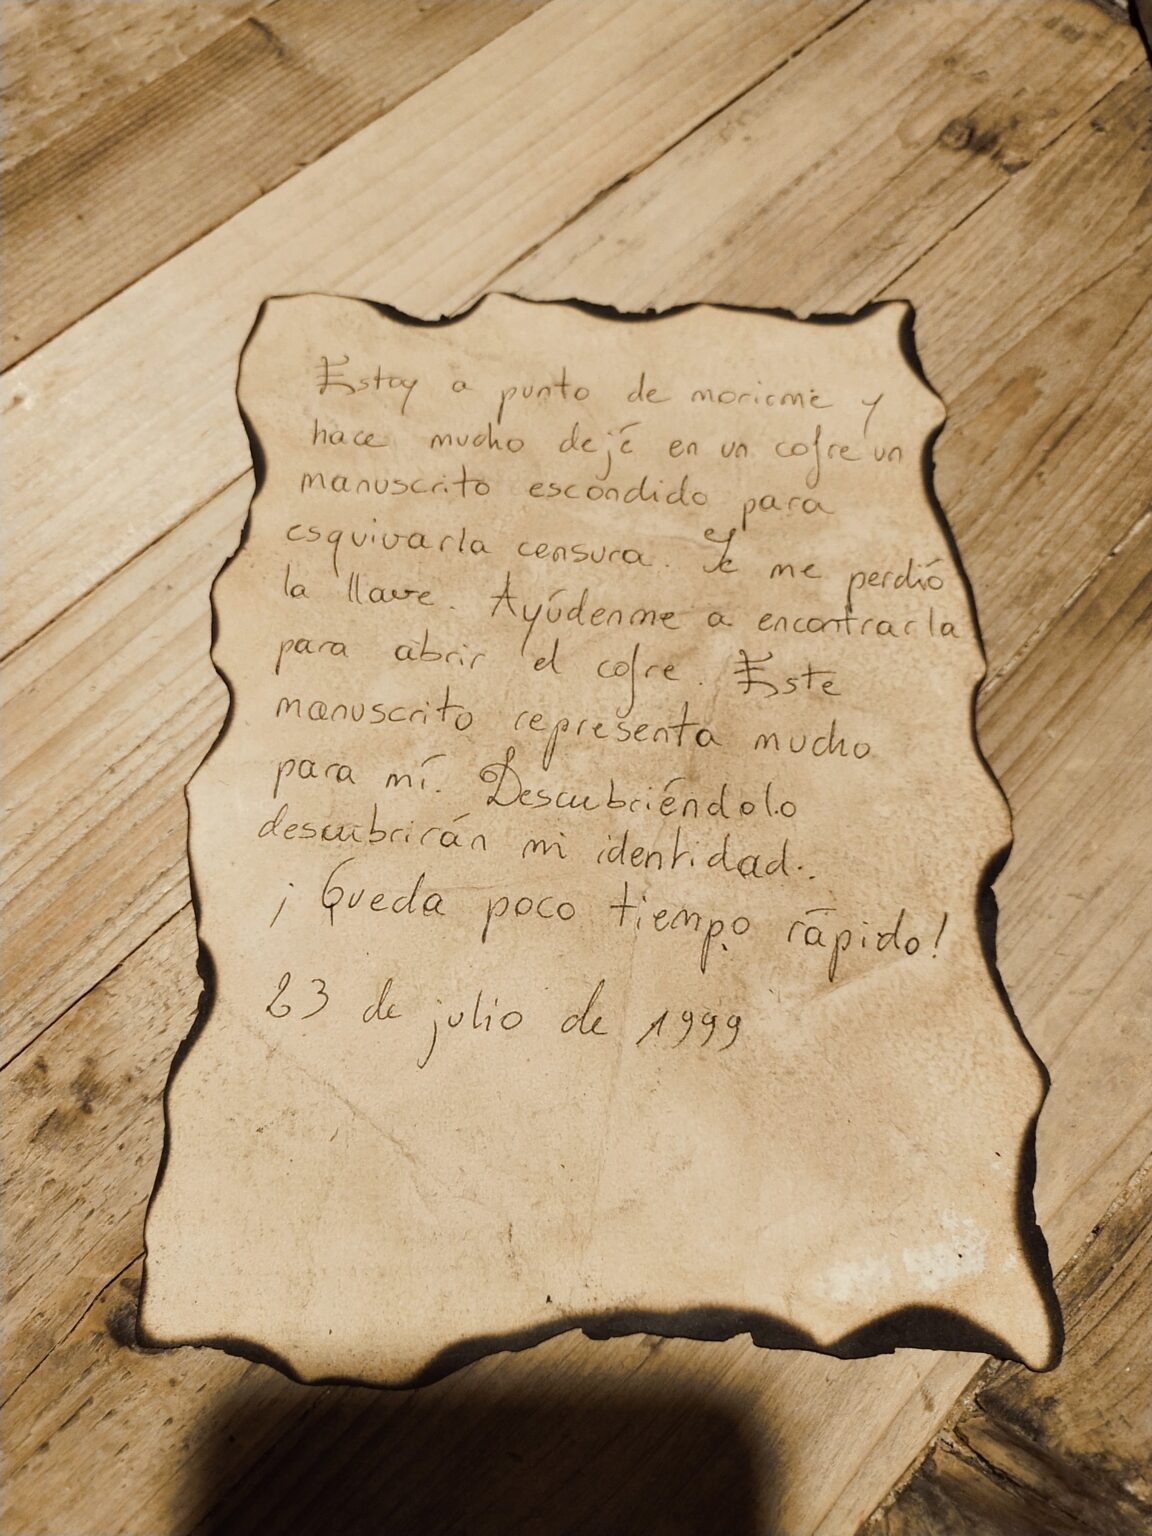 Estoy a punto de morirme y
hace mucho dejé en un cofre un
manuscrito escondido para
esquivar la censura. Se me perdió
la llave. Ayúdenme a encontrar la
para abrir el cofre. Este
manuscrito representa mucho
para mí. Descubriéndolo
descubrirán mi identidad..
¡Queda poco tiempo rápido!
23 de julio de 1999